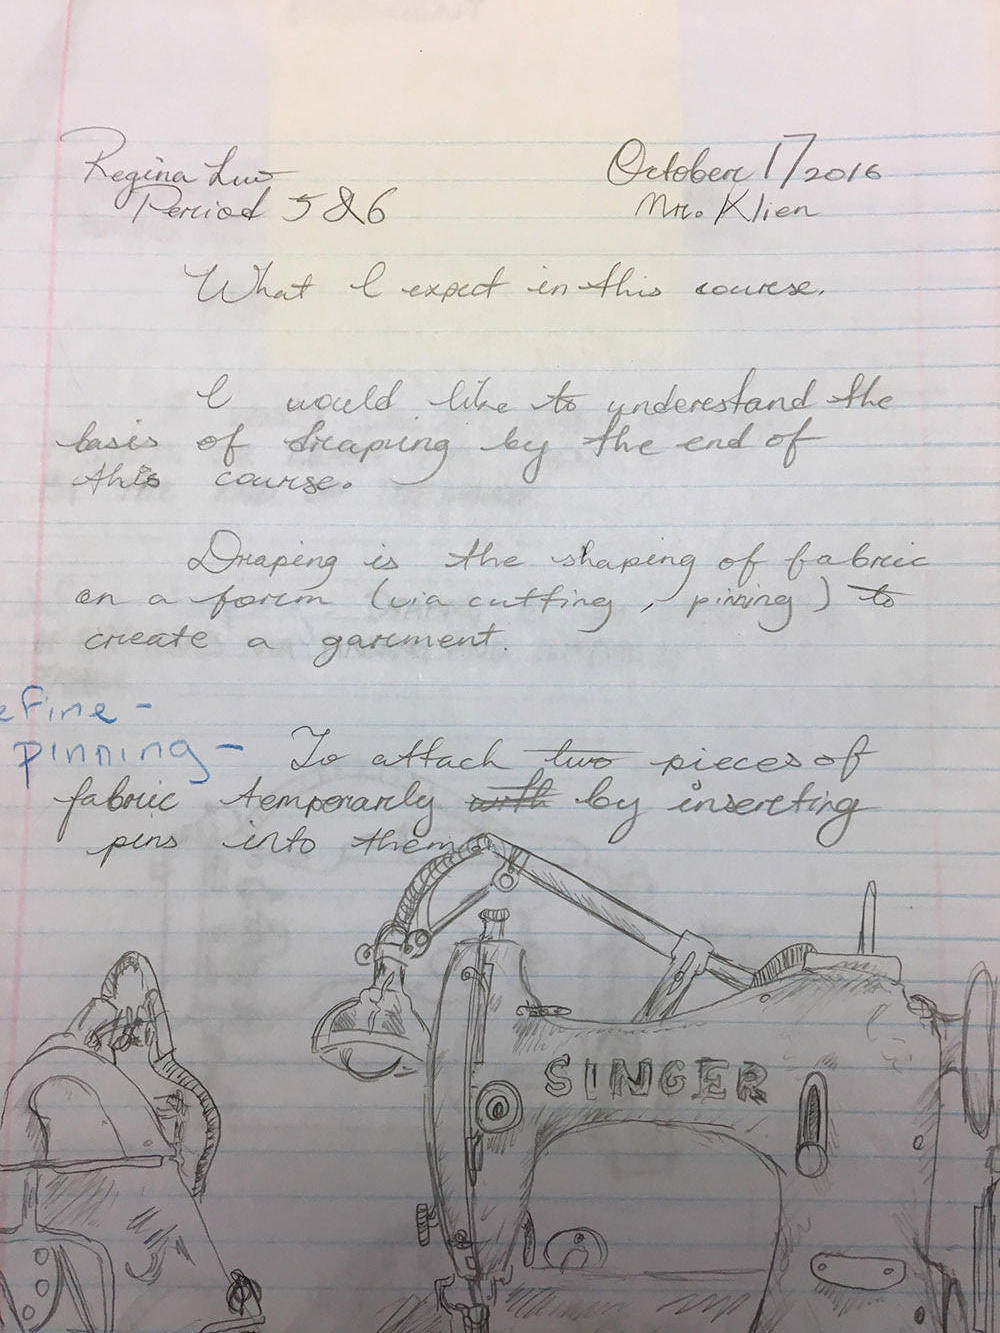 Regina Luo
October 17/2016
Period 5&6
Mr. Klien
What I expect in this course.
I would like to understand the
basis of draping by the end of
this course.
Draping is the shaping of fabric
on a form (via cutting, pinning) to
create a garment.
efine -
pinning - To attach two pieces of
fabric temporarily with by inserting
pins into them.
SINGER